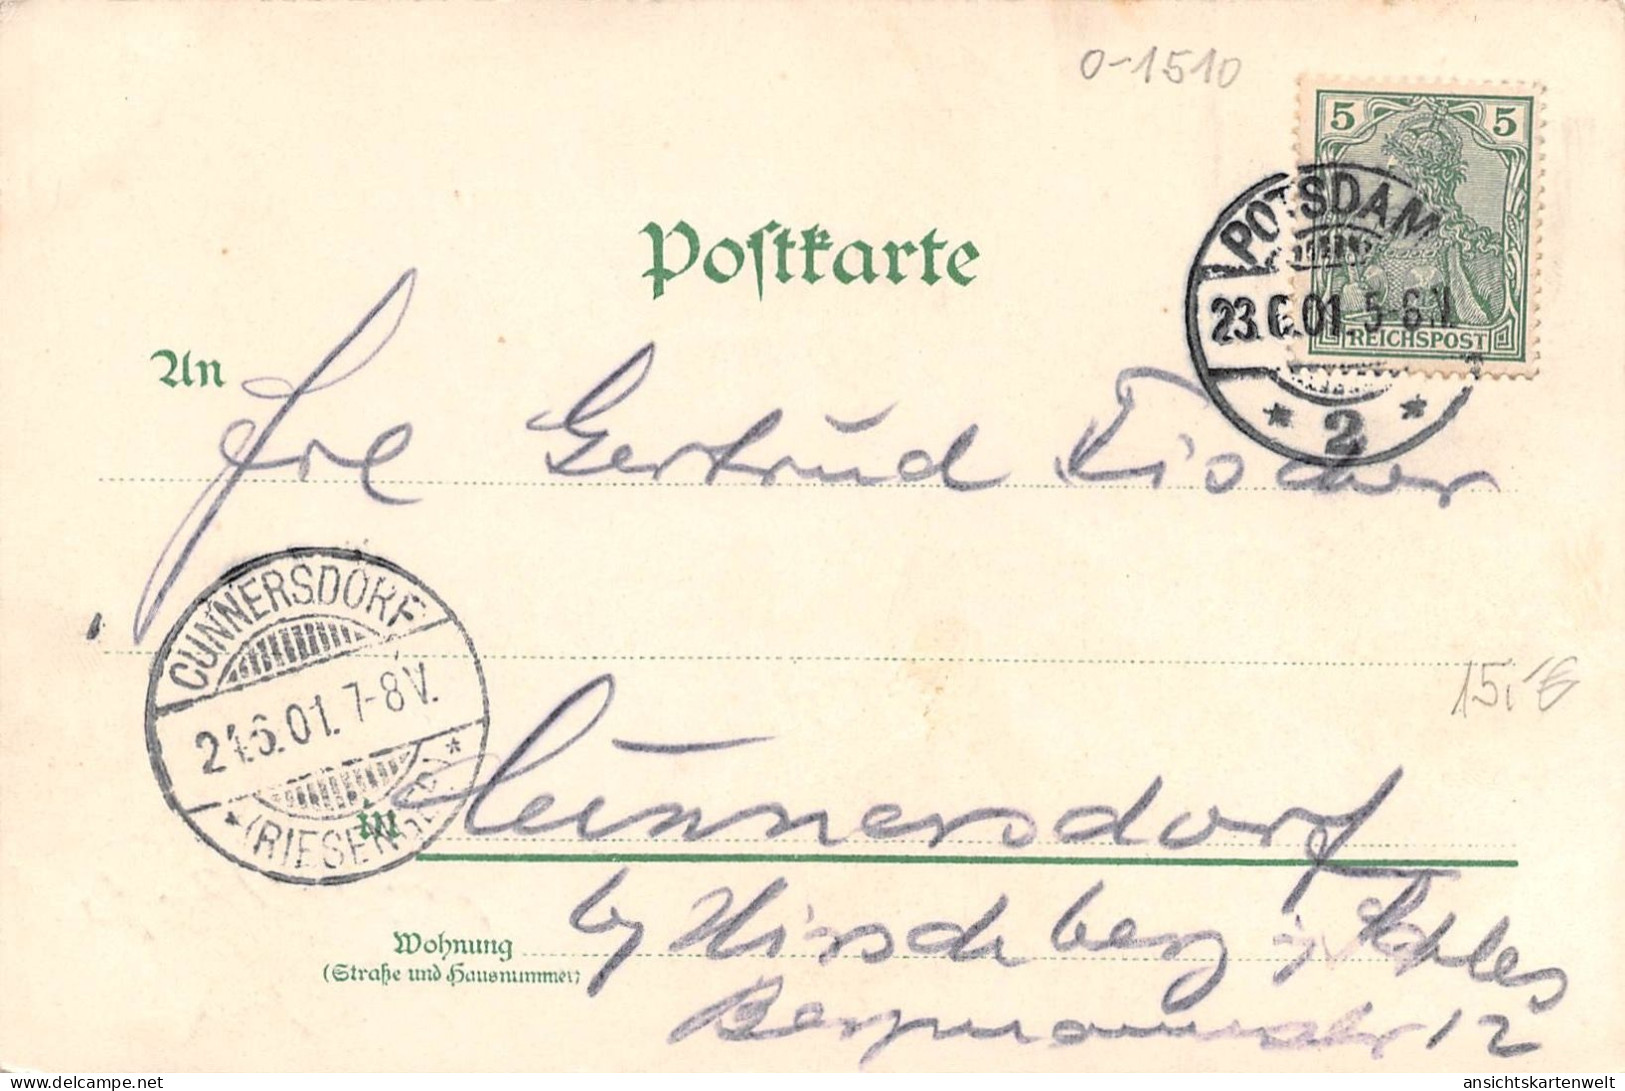 0-1510
5 5
REICHSPOST
POTSDAM
23.6.01. 5-6 N.
* 2 *
Postkarte
An
Frl Gertrud Fischer
CUNNERSDORF
24.6.01. 7-8 V.
* (RIESENGEB) *
15,-€
in Cunnersdorf
Wohnung
(Straße und Hausnummer)
by Hirschberg i/ Schles
Bergmannstr 12
ansichtskartenwelt